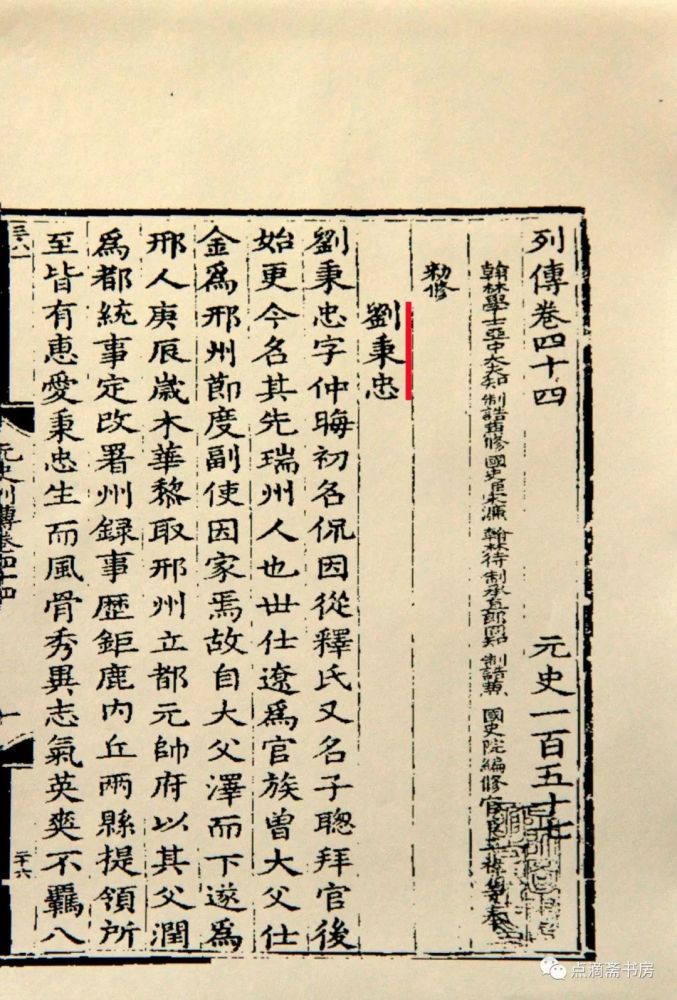 列傳卷四十四 元史一百五十七
翰林學士亞中大夫知制誥兼修國史臣宋濂 翰林待制承直郎同知制誥兼國史院編修官臣王禕等奉
勑修
劉秉忠
劉秉忠字仲晦初名侃因從釋氏又名子聰拜官後
始更今名其先瑞州人也世仕遼爲官族曾大父仕
金爲邢州節度副使因家焉故自大父澤而下遂爲
邢人庚辰歲木華黎取邢州立都元帥府以其父潤
爲都統事定改署州録事歷鉅鹿内丘兩縣提領所
至皆有惠愛秉忠生而風骨秀異志氣英爽不羈八
元史列傳卷四十四 一
点滴斋书房